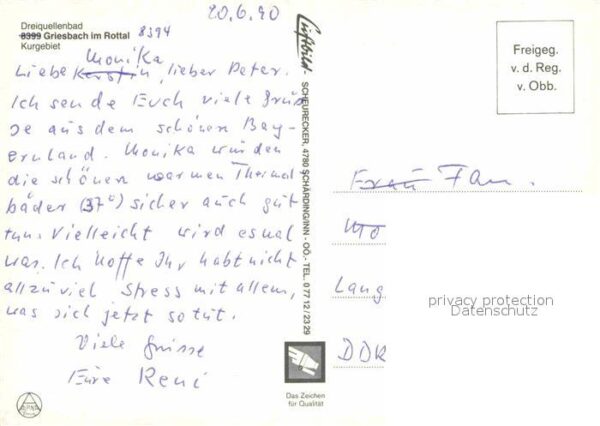 20.6.90
Dreiquellenbad
8399 Griesbach im Rottal 8394
Kurgebiet
Monika
Liebe Kerstin, lieber Peter.
Ich sende Euch viele Grüs-
se aus dem schönen Bay-
ernland. Monika würden
die schönen warmen Thermal
bäder (37°) sicher auch gut
tun. Vielleicht wird es mal
was. Ich hoffe Ihr habt nicht
allzuviel Stress mit allem,
was sich jetzt so tut.
Viele Grüsse
Eure René
Luftbild - SCHEURECKER, 4780 SCHÄRDING/INN - OÖ. - TEL. 0 77 12 / 23 29
Das Zeichen
für Qualität
Freigeg.
v. d. Reg.
v. Obb.
Frau Fam.
Lang
DDR
privacy protection
Datenschutz